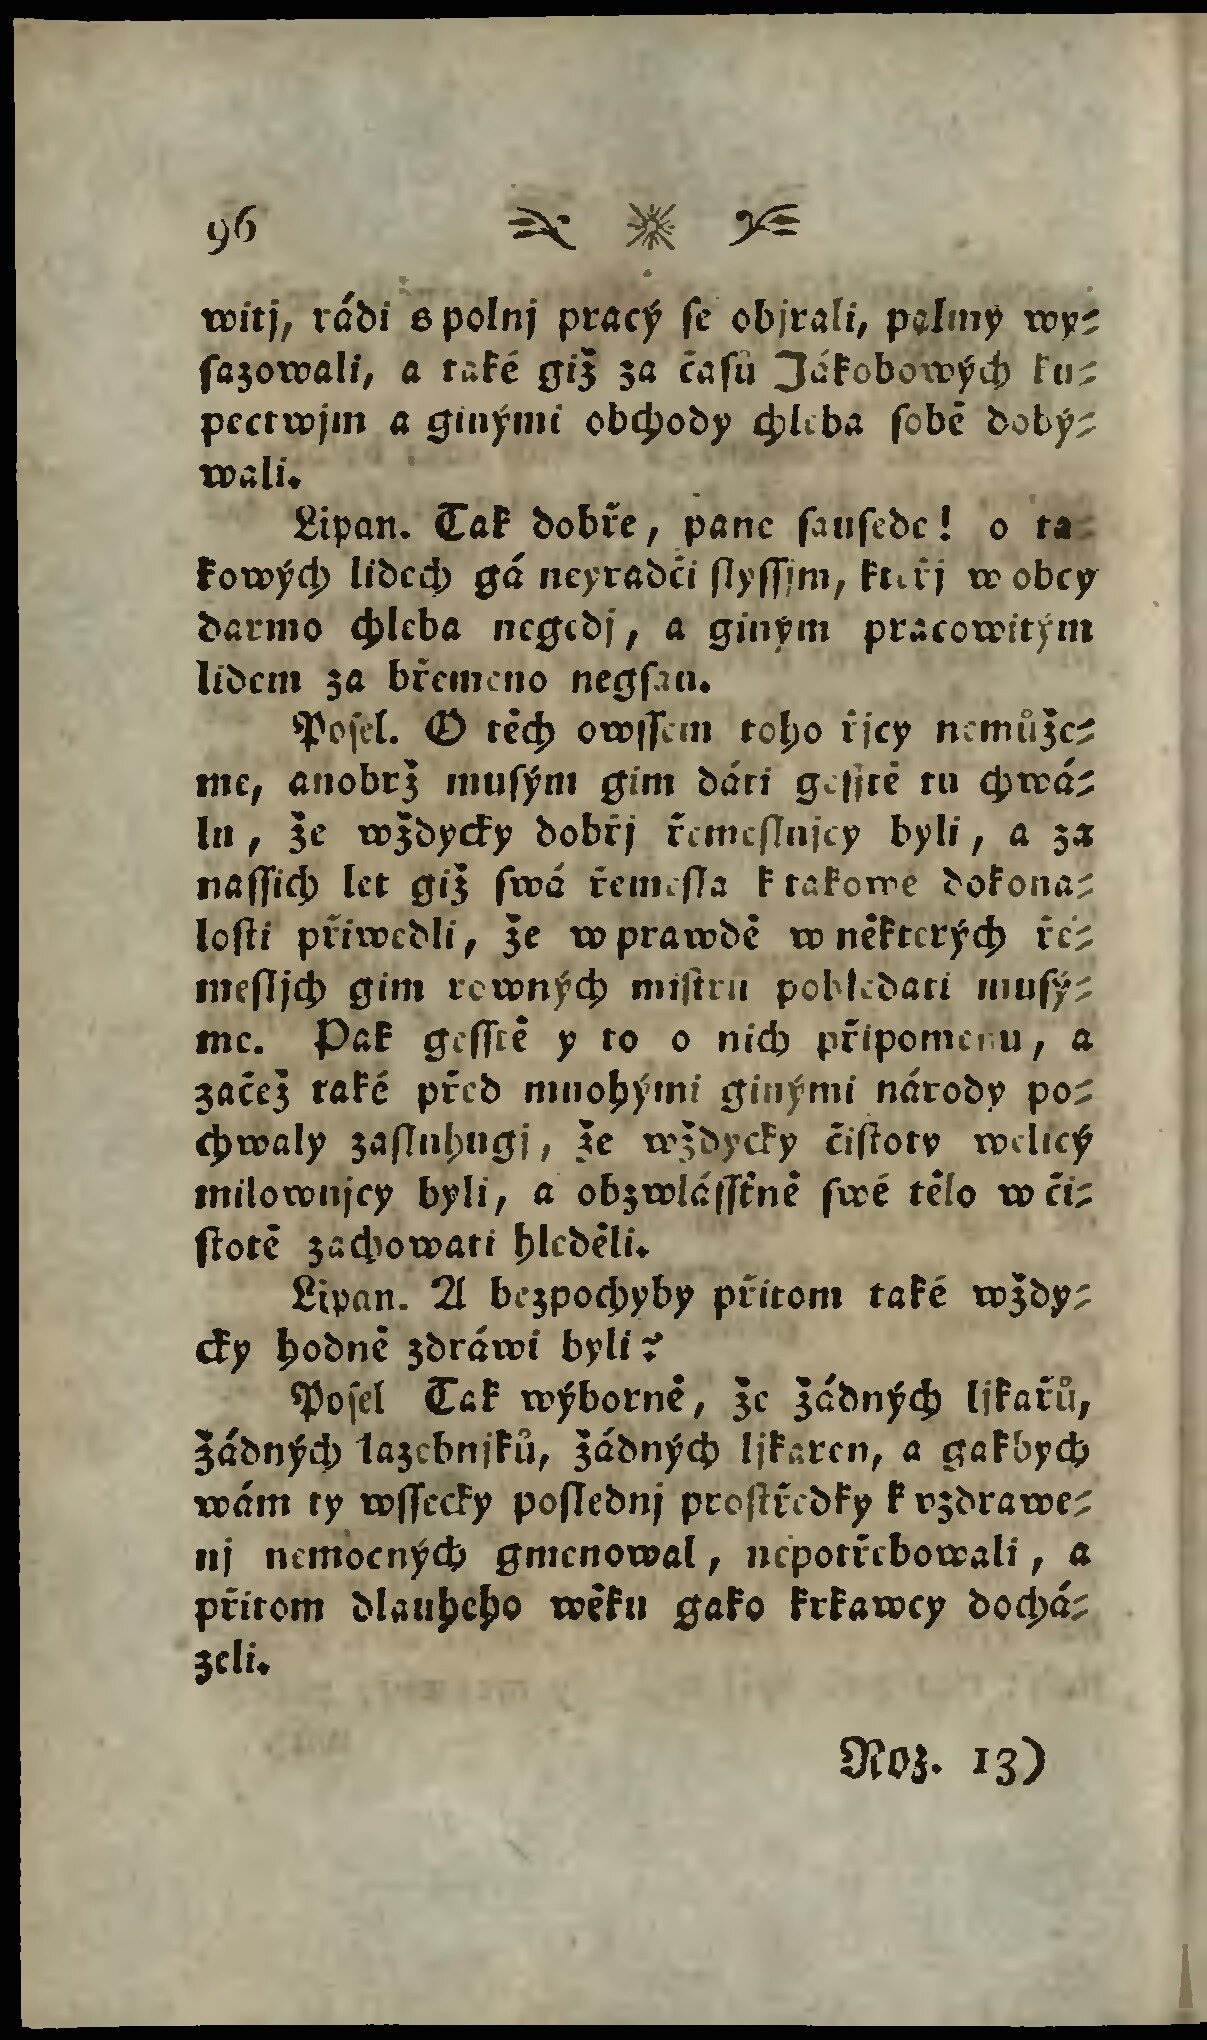 96
witj, rádi s polnj pracý se objrali, palmy wy-
sazowali, a také giž za časů Jákobowých ku-
pectwjm a ginými obchody chleba sobě dobý-
wali.
Lipan. Tak dobře, pane sausede! o ta-
kowých lidech gá neyradči slyssjm, kteřj w obcy
darmo chleba negedj, a giným pracowitým
lidem za břemeno negsau.
Posel. O těch owssem toho řjcy nemůže-
me, anobrž musým gim dáti gesstě tu chwá-
lu, že wždycky dobřj řemeslnjcy byli, a za
nassich let giž swá řemesla k takowé dokona-
losti přiwedli, že w prawdě w některých ře-
mesljch gim rowných mistru pohledati musý-
me. Pak gesstě y to o nich připomenu, a
začež také před mnohými ginými národy po-
chwaly zasluhugj, že wždycky čistoty welicý
milownjcy byli, a obzwlásstně swé tělo w či-
stotě zachowati hleděli.
Lipan. A bezpochyby přitom také wždy-
cky hodně zdráwi byli?
Posel Tak wýborně, že žádných ljkařů,
žádných lazebnjků, žádných ljkaren, a gakbych
wám ty wssecky poslednj prostředky k vzdrawe-
nj nemocných gmenowal, nepotřebowali, a
přitom dlauheho wěku gako krkawcy dochá-
zeli.
Roz. 13)